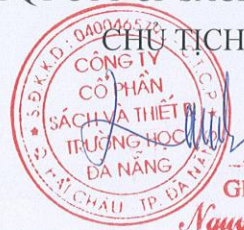 CHỦ TỊCH
S.Đ.K.K.D: 04004657
C.T.C.P
CÔNG TY
CỔ PHẦN
SÁCH VÀ THIẾT BỊ
TRƯỜNG HỌC
ĐÀ NẴNG
Q. HẢI CHÂU TP. ĐÀ NẴNG